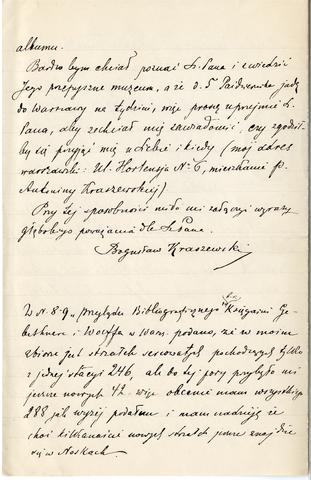 albumu.
Bardzo bym chciał poznać Sz. Pana i zwiedzić
Jego przepyszne muzeum, a że d. 5 Października jadę
do Warszawy na tydzień, więc proszę uprzejmie Sz.
Pana, aby zechciał mię zawiadomić, czy zgodził-
by się przyjąć mię u siebie i kiedy (mój adres
warszawski: Ul. Hortensja No 6, mieszkanie p.
Antoniny Kraszewskiej)
Przy tej sposobności miło mi załączyć wyrazy
głębokiego poważania dla Sz Pana.
Bogusław Kraszewski
W N. 8-9 Przeglądu Bibliograficznego Księgarni Ge-
bethnera i Wolffa w Warsz. podano, że w moim
zbiorze jest strzałek sercowatych pochodzących tylko
z jednej stacyi 246, ale do tej pory przybyło mi
jeszcze nowych 42. więc obecnie mam wszystkiego
288 jak wyżej podałem i mam nadzieję że
choć kilkanaście nowych strzałek jeszcze znajdzie
się w Noskach.